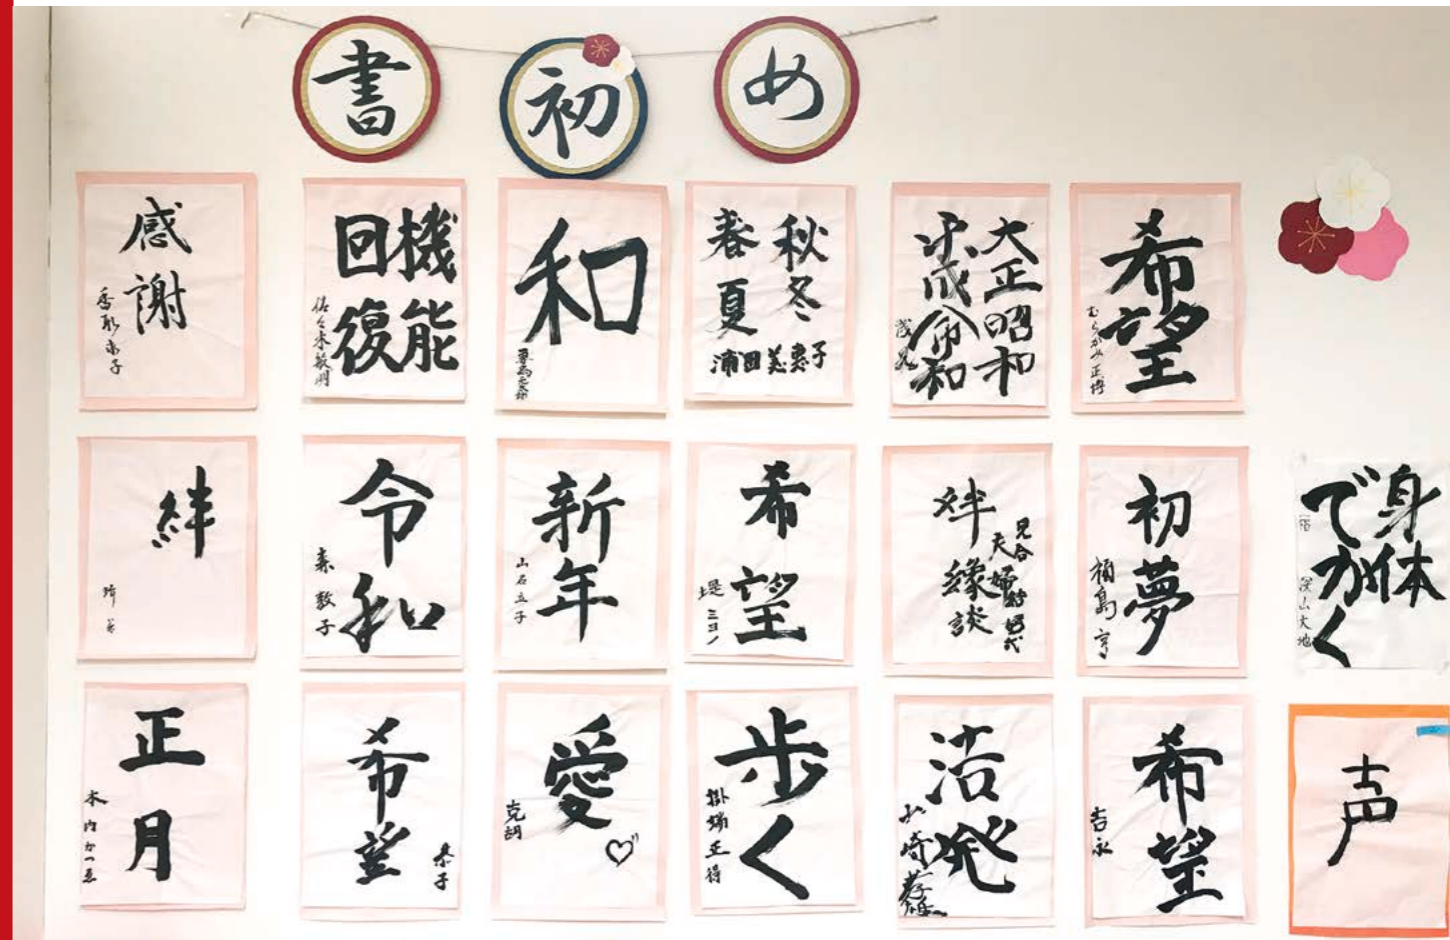 書初め
感謝
機能
回復
佐々木敏明
和
秋冬
春夏
浦田美恵子
大正昭和
平成令和
希望
むらかみ正博
絆
令和
森敦子
新年
山石立子
希望
堤ミヨノ
絆
縁談
見合
夫婦
初夢
福島亨
身体
でかく
深山大地
正月
木内かつゑ
希望
恭子
愛
克嗣
♡
歩く
掛端正得
活発
希望
吉永
声